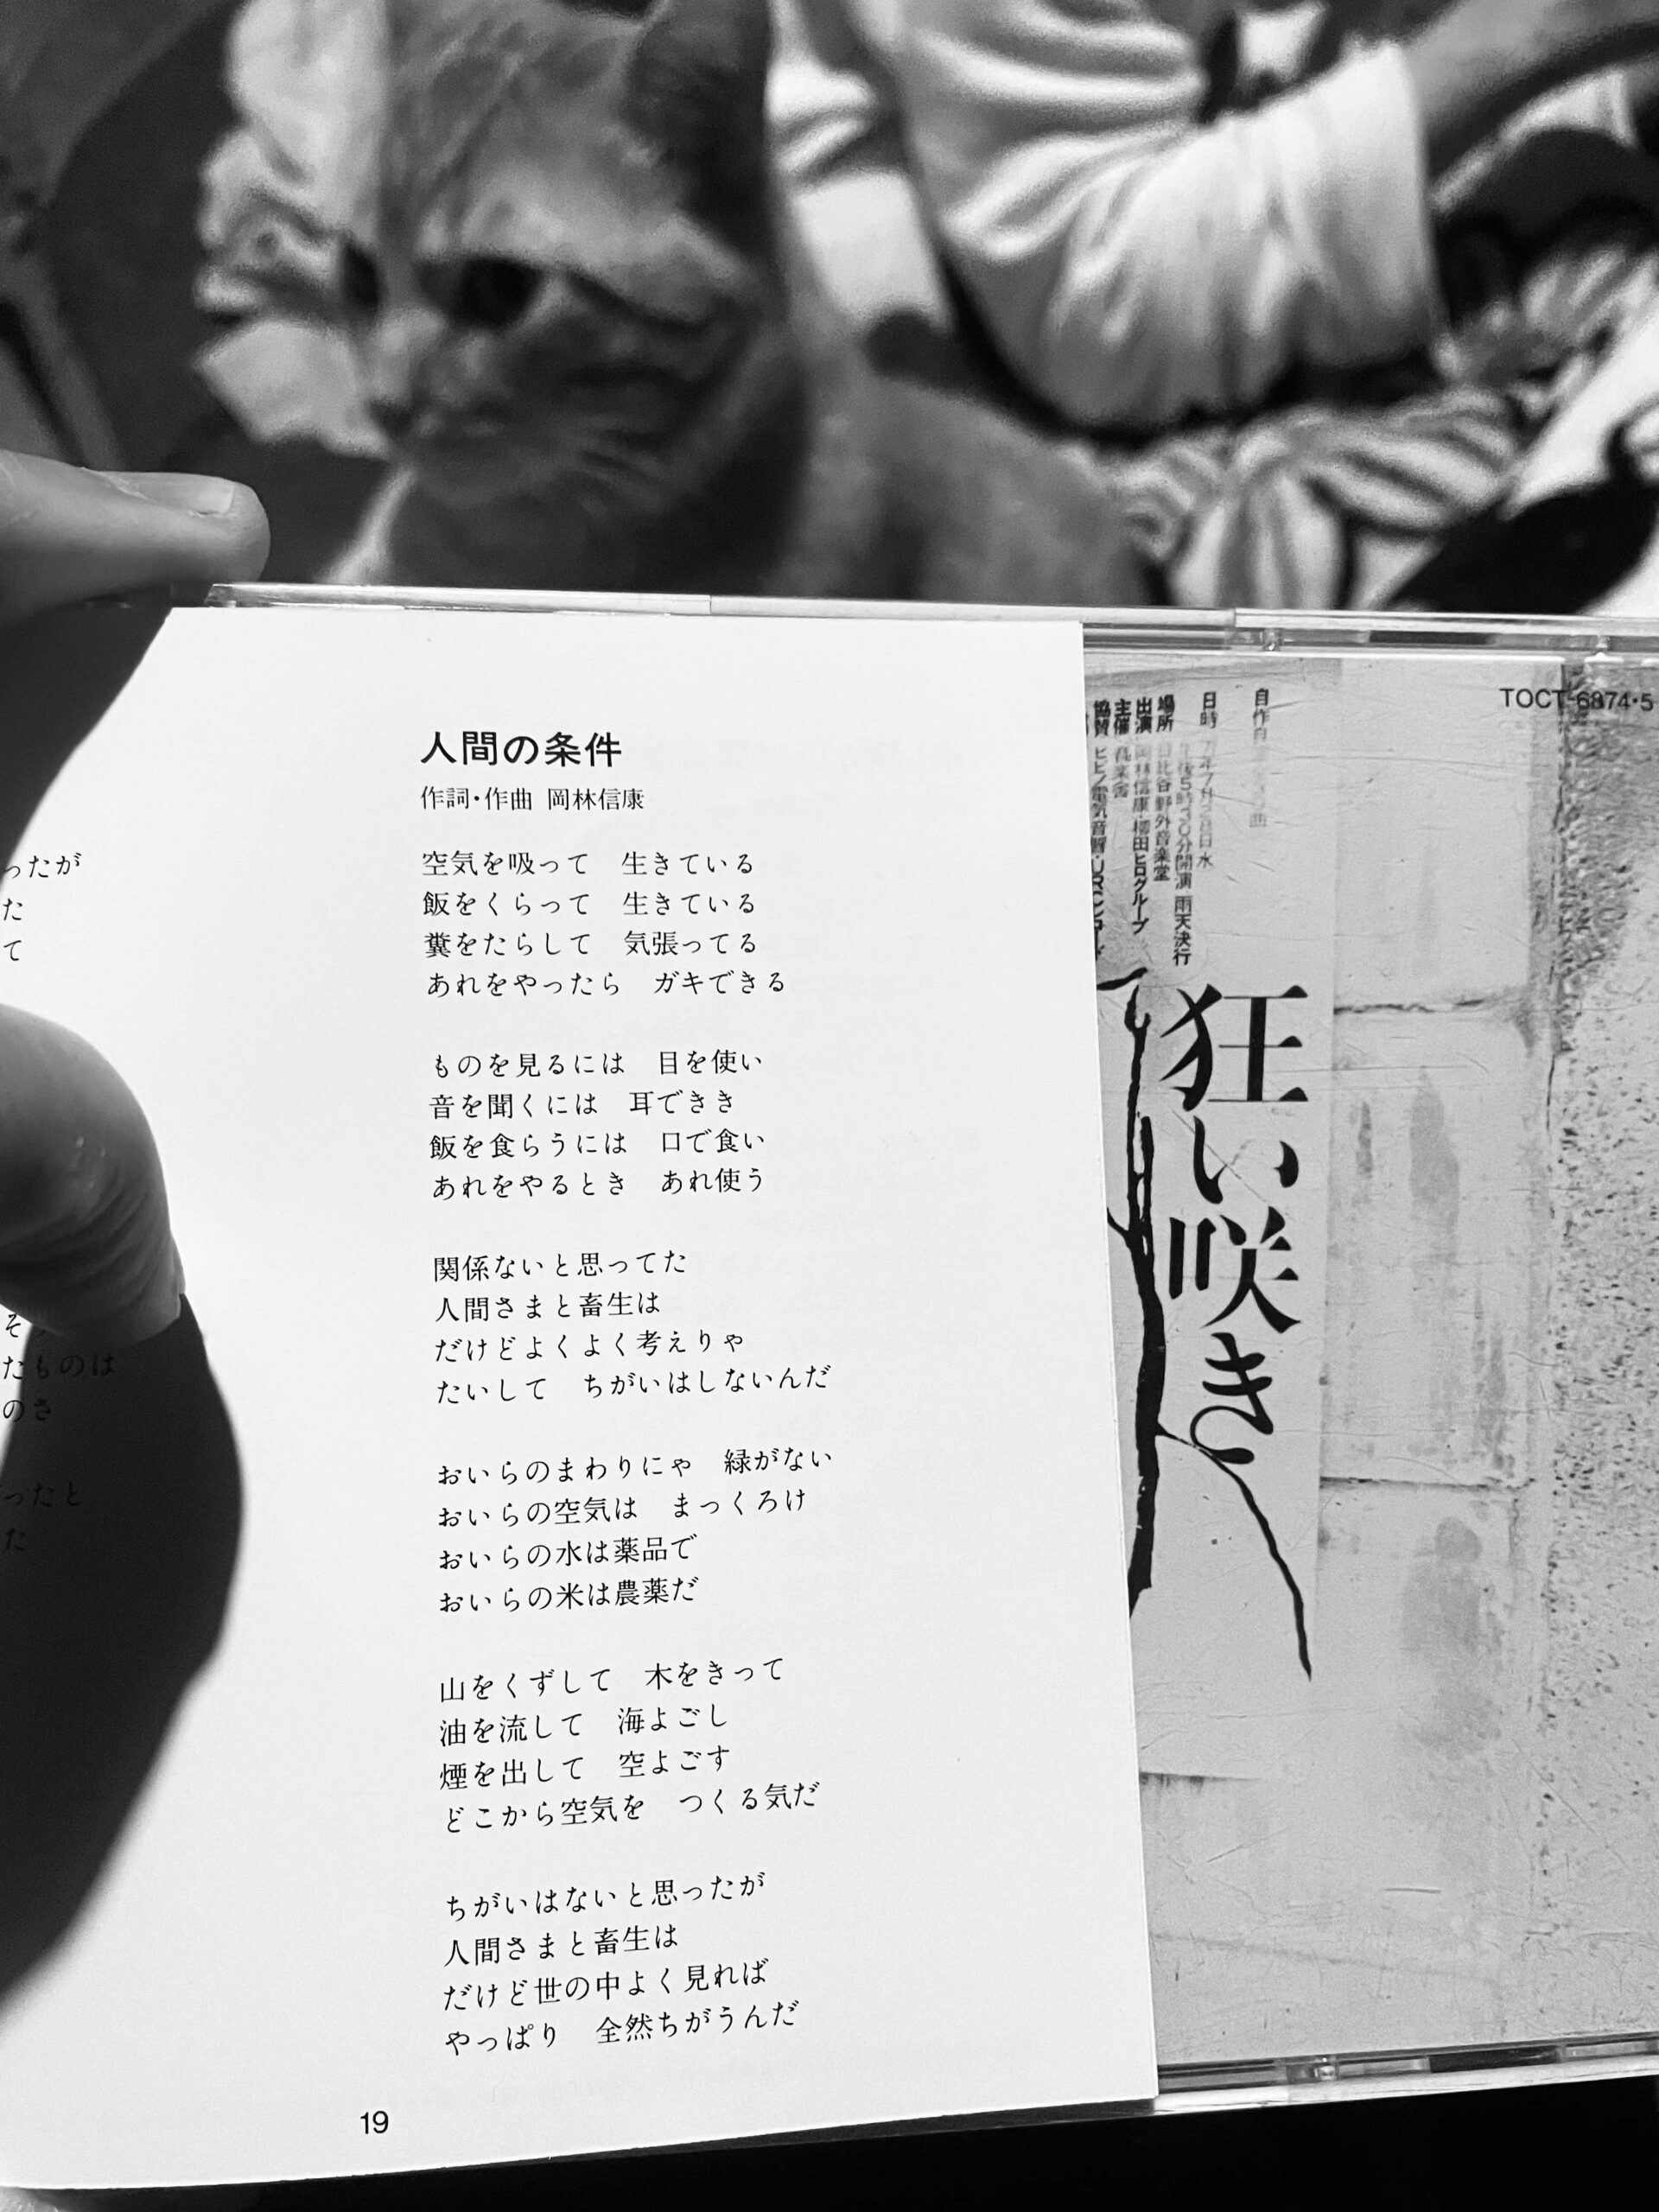 ったが
た
て
たものは
のさ
ったと
た
人間の条件
作詞・作曲 岡林信康
空気を吸って 生きている
飯をくらって 生きている
糞をたらして 気張ってる
あれをやったら ガキできる
ものを見るには 目を使い
音を聞くには 耳できき
飯を食らうには 口で食い
あれをやるとき あれ使う
関係ないと思ってた
人間さまと畜生は
だけどよくよく考えりゃ
たいして ちがいはしないんだ
おいらのまわりにゃ 緑がない
おいらの空気は まっくろけ
おいらの水は薬品で
おいらの米は農薬だ
山をくずして 木をきって
油を流して 海よごし
煙を出して 空よごす
どこから空気を つくる気だ
ちがいはないと思ったが
人間さまと畜生は
だけど世の中よく見れば
やっぱり 全然ちがうんだ
19
TOCT-6874・5
自作自
日時
午後5時30分開演 雨天決行
場所 日比谷野外音楽堂
出演 岡林信康・柳田ヒログループ
主催 音楽舎
協賛
狂い咲き